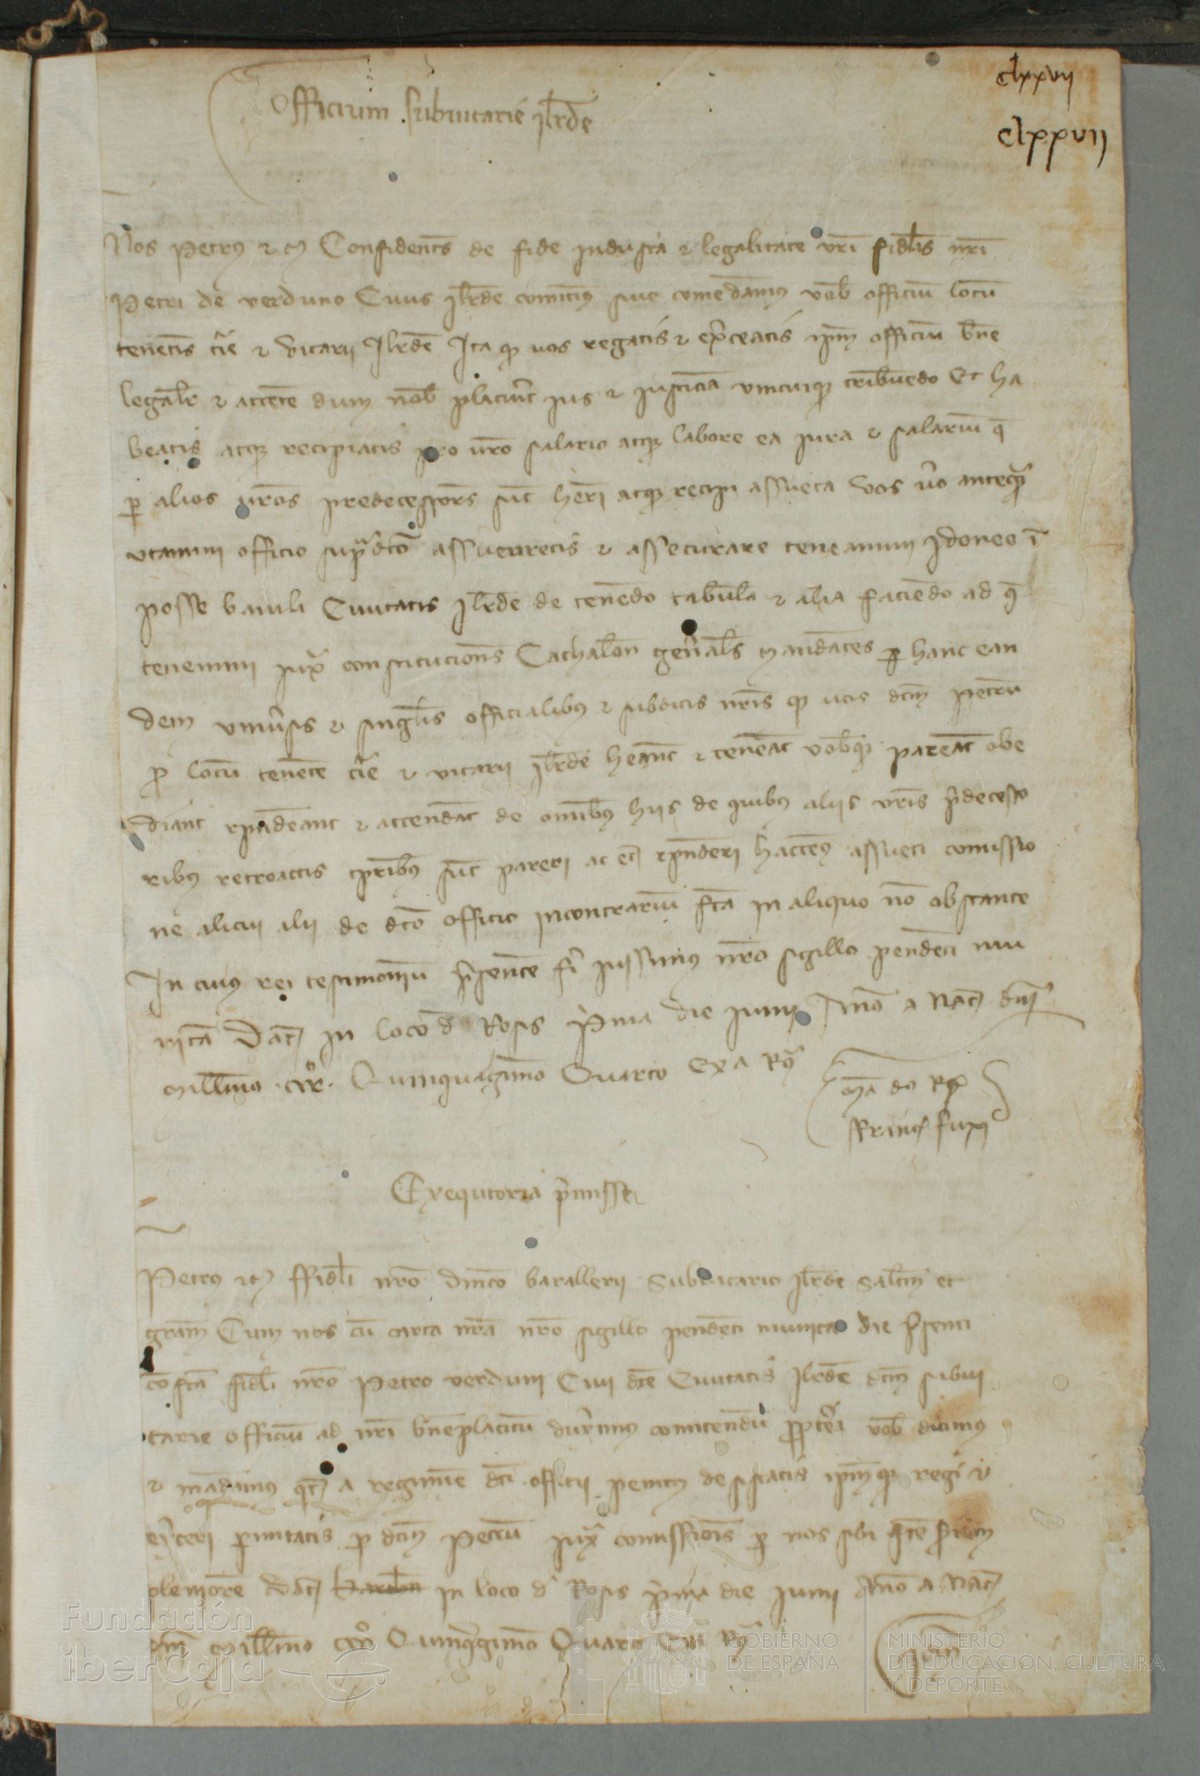 clxxvii
clxxvii
Officium subvicarie Ilrde
Nos Petrus etc Confidentes de fide industria et legalitate vri fidelis nri
Petri de verduno Civis Ilrde comittimus sive comendamus vobis officium locum
tenentis curie et vicarii Ilrde Ita quod vos regatis et exerceatis ipm officium bene
legalr et attente dum nob placuerit jus et justicia unicuique tribuendo Et ha
beatis atque recipiatis pro vro salario atque labore ea jura et salarium que
per alios vros predecessores sunt heri atque recipi assueta Vos vero antequam
utamini officio supradicto assecuretis et assecurare teneamini idonee in
posse baiuli Civitatis Ilrde de tenendo tabula et alia faciendo ad que
tenemini juxta constitucions Cathalon generals mandantes per hanc ean
dem universis et singulis officialibus et subditis nris quod vos dcm Petrum
pro locum tenente curie et vicarii Ilrde heant et teneant vobisque pareant obe
diant rpndeant et attendant de omibus hiis de quibus aliis vris predecesso
ribus retroactis tpribus sunt pareri ac etc rpnderi hactenus assueti comissio
ne alicui alii de dco officio incontrarium fca in aliquo no obstante
In cuius rei testimonium psentem fi iussimus nro sigillo pendenti mu
nita Dat in loco d Rosis prima die junii Anno a Nat dni
Millmo CCC Quinquagimo Quarto Exa Rª
Franc fuxi
Exequtoria pmisse
Petrus etc ffideli nro barallerii subvicario Ilrde Saltm et
gram Cum nos cu carta nra nro sigillo pendenti munita die psenti
fideli nro Petro verduni Civi dce Civitatis Ilrde dcm subvi
carie officium ad nri bneplacitum duximus comitendum vob dicimus
et mandamus a regimine dci officii penitus desistatis ipmque regi et
exceri pmittatis p dcm Petrum juxta comissionis p nos sibi
pleniorem Dat in loco d Rosis prima die junii Anno a Nat
dni Millmo CCCo Quinqagimo Quarto Rª
Fundación
iberCaja
GOBIERNO
DE ESPAÑA
MINISTERIO
DE EDUCACIÓN, CULTURA
Y DEPORTE